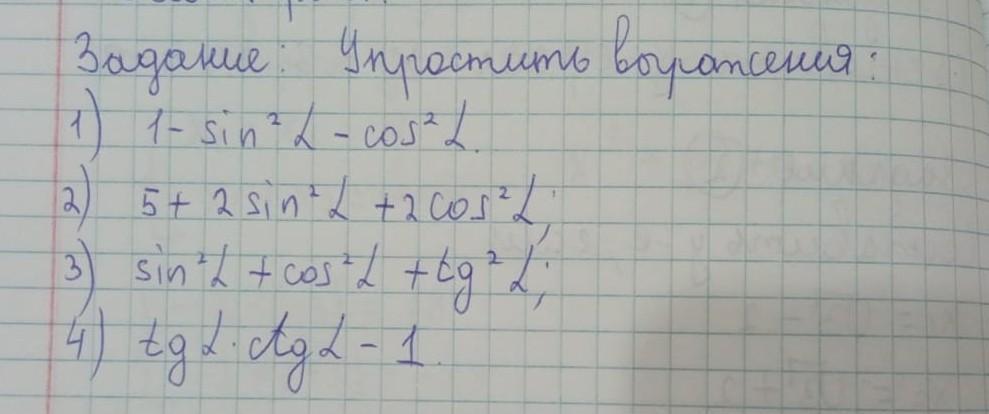 Задание: Упростить выражения:
1) 1 - sin² α - cos² α.
2) 5 + 2 sin² α + 2 cos² α;
3) sin² α + cos² α + tg² α;
4) tg α · ctg α - 1.